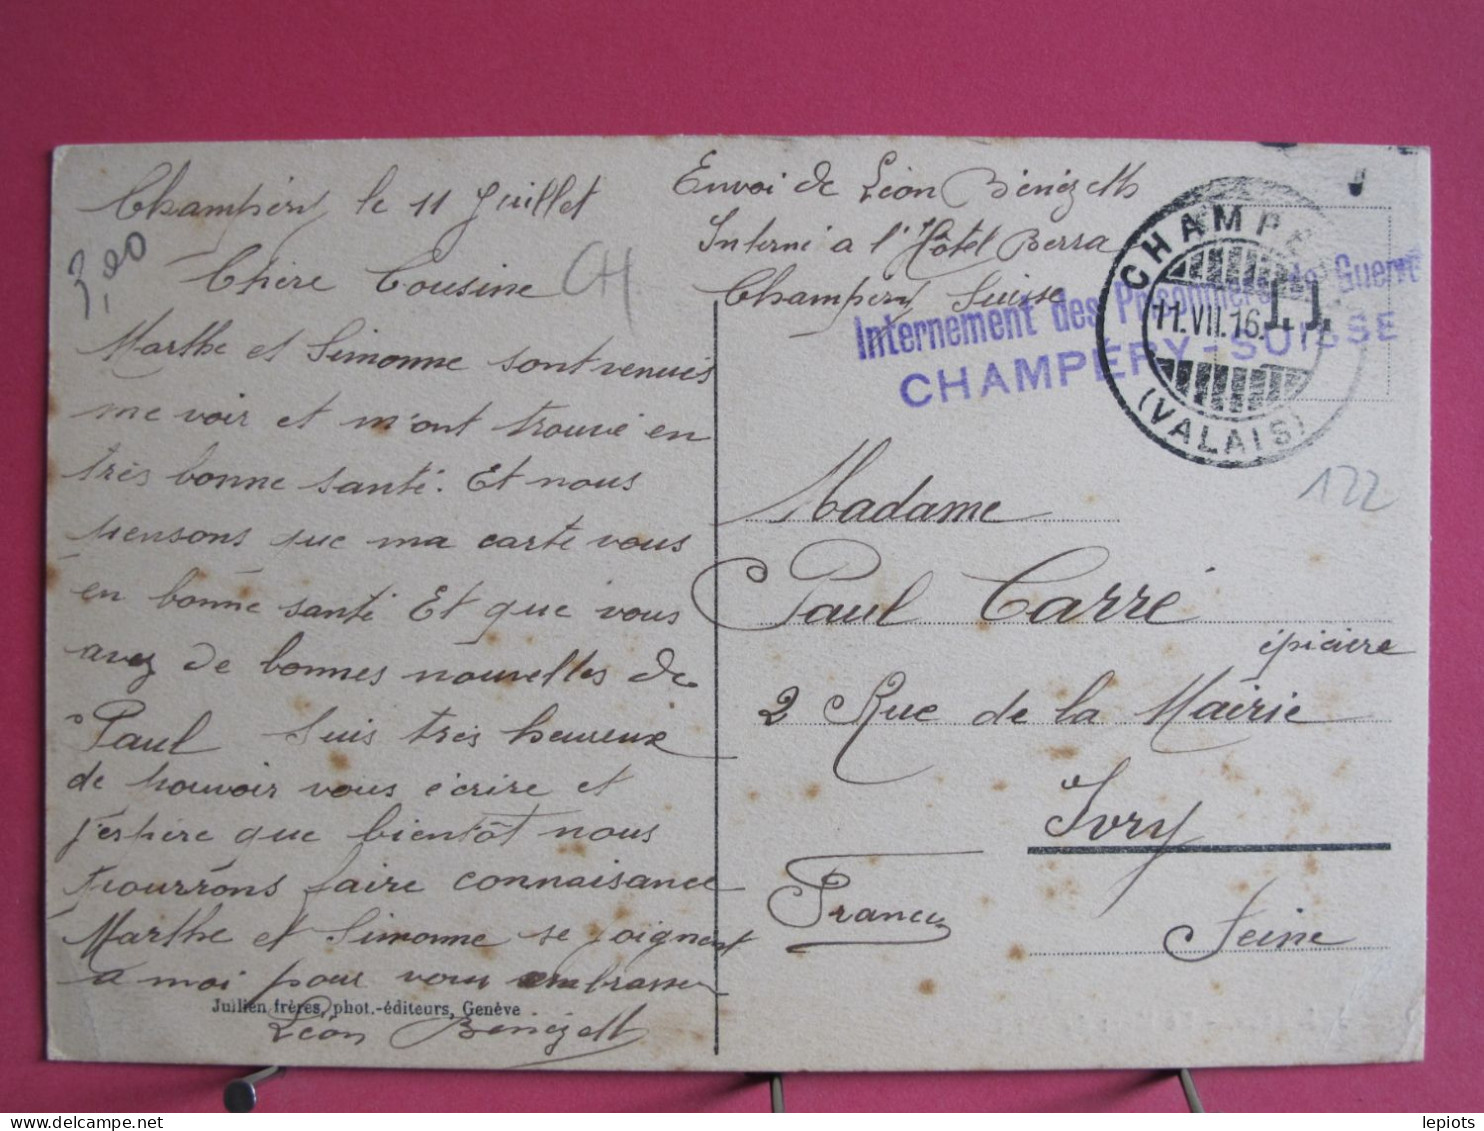 Champéry le 11 Juillet
3,00
Chère Cousine
CH
Marthe et Simonne sont venues
me voir et m'ont trouvé en
très bonne santé. Et nous
pensons que ma carte vous
en bonne santé Et que vous
avez de bonnes nouvelles de
Paul Suis très heureux
de pouvoir vous écrire et
j'espère que bientôt nous
pourrons faire connaisance
Marthe et Simonne se joignent
a moi pour vous embrasser
Julllen frères, phot.-éditeurs, Genève
Léon Bénézeth
Envoi de Léon Bénézeth
Interné a l'Hôtel Berra
Champéry Suisse
Internement des Prisonniers de Guerre
CHAMPÉRY - SUISSE
CHAMPÉRY
11.VII.16.11
(VALAIS)
122
Madame
Paul Carré
épiciere
2 Rue de la Mairie
Ivry
France
Seine
lepiots